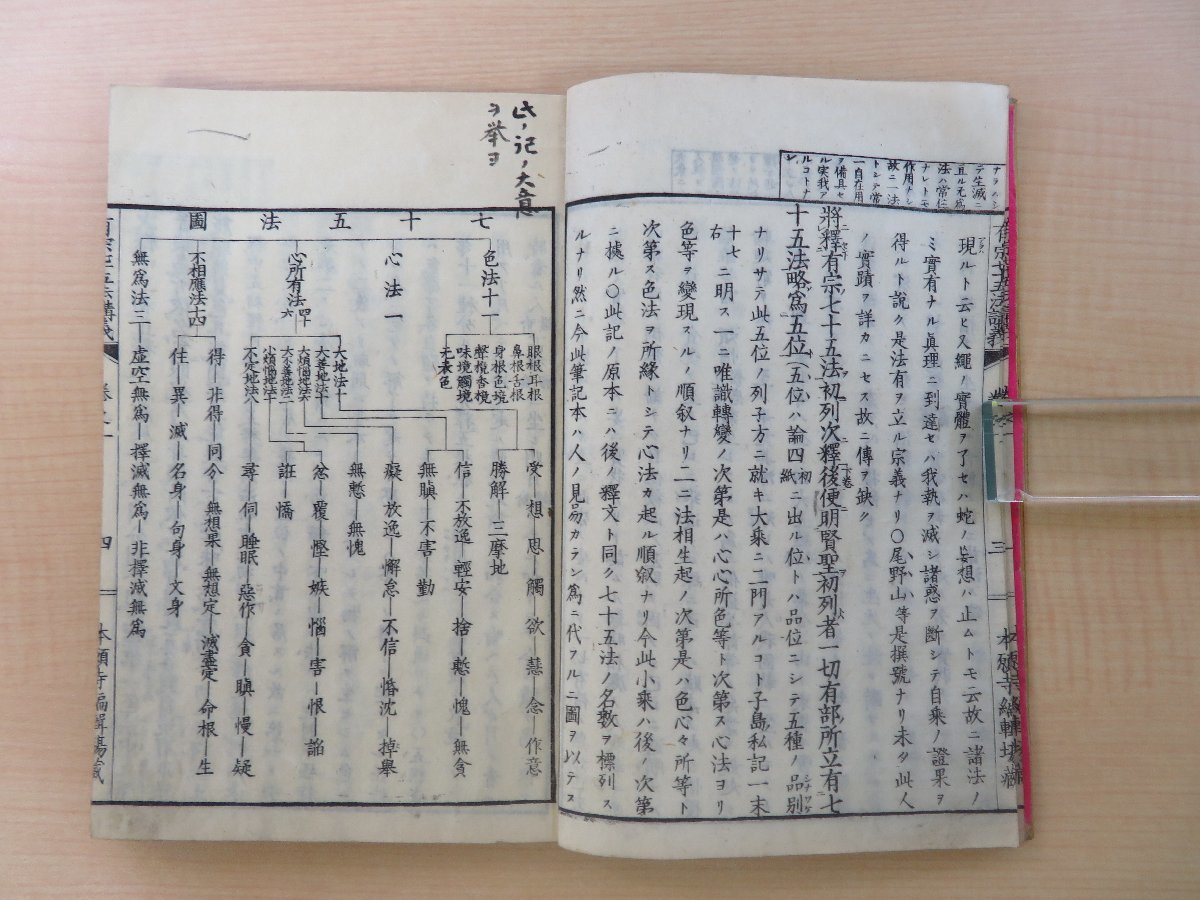 ナラハシ
テ生滅ニ
且ル无爲
法ハ常仁
ナレトモ
作用ナシ
故ニ一法
トシテ常
一自在用
ヲ備具セ
ル実我ア
ルコトナ
シ
現ルト云ヒ又繩ノ實體ヲ了セハ蛇ノ妄想ハ止ムトモ云故ニ諸法ノ
ミ實有ナル眞理ニ到達セハ我執ヲ滅シ諸惑ヲ斷シテ自乘ノ證果ヲ
得ルト説ク是法有ヲ立ル宗義ナリ〇尾野山等是撰號ナリ未タ此人
ノ實蹟ヲ詳カニセス故ニ傳ヲ缺ク
將釋有宗七十五法初列次釋後便明賢聖初列者一切有部所立有七
十五法略爲五位(五位ハ論四初紙ニ出ル位トハ品位ニシテ五種ノ品別
ナリサテ此五位ノ列子方ニ就キ大乘ニ二門アルコト子島私記一末
十七右ニ明ス一ニ唯識轉變ノ次第是ハ心心所色等ト次第ス心法ヨリ
色等ヲ變現スルノ順叙ナリ二ニ法相生起ノ次第是ハ色心々所等ト
次第ス色法ヲ所緣トシテ心法カ起ル順叙ナリ今此小乘ハ後ノ次第
ニ據ル〇此記ノ原本ニハ後ノ釋文ト同ク七十五法ノ名數ヲ標列ス
ルナリ然ニ今此筆記本ハ人ノ見易カラン爲ニ代フルニ圖ヲ以テス
三
此ノ記ノ大意
ヲ挙ヨ
七十五法圖
色法十一
眼根耳根
鼻根舌根
身根色境
聲境香境
味境觸境
无表色
心法一
心所有法四十六
大地法十
大善地法十
大煩惱地法六
大不善地法二
小煩惱地法十
不定地法八
受―想―思―觸―欲―慧―念―作意
勝解―三摩地
信―不放逸―輕安―捨―慙―愧―無貪
無瞋―不害―勤
癡―放逸―懈怠―不信―惛沈―掉舉
無慙―無愧
忿―覆―慳―嫉―惱―害―恨―諂
誑―憍
尋―伺―睡眠―惡作―貪―瞋―慢―疑
不相應法十四
得―非得―同分―無想果―無想定―滅盡定―命根―生
住―異―滅―名身―句身―文身
無爲法三―虛空無爲―擇滅無爲―非擇滅無爲
四
本願寺編輯塲藏